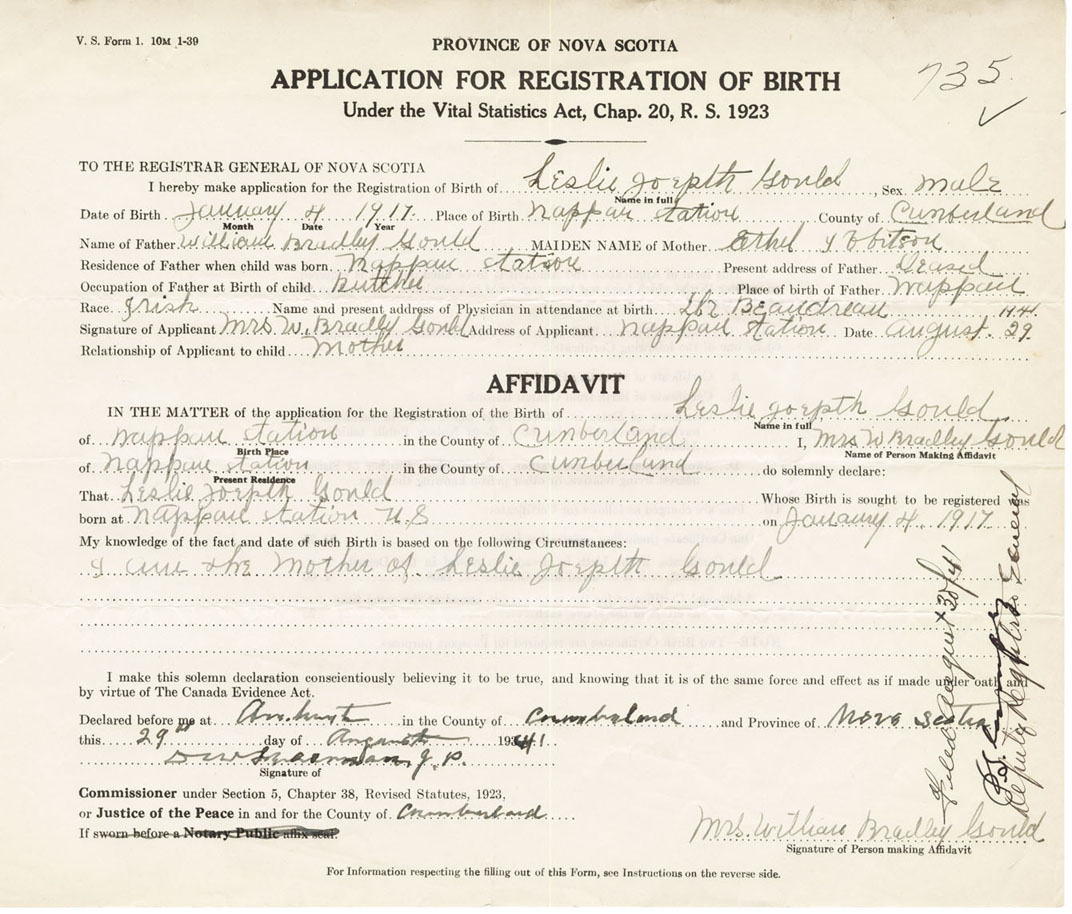 V. S. Form 1. 10M 1-39
PROVINCE OF NOVA SCOTIA
735
APPLICATION FOR REGISTRATION OF BIRTH
Under the Vital Statistics Act, Chap. 20, R. S. 1923
TO THE REGISTRAR GENERAL OF NOVA SCOTIA
I hereby make application for the Registration of Birth of Leslie Joepth Gould, Sex Male
Name in full
Date of Birth January 4 1917. Place of Birth Nappan Station County of Cunberland
Month Date Year
Name of Father William Bradley Gould, MAIDEN NAME of Mother Ethel
Residence of Father when child was born Nappan Station Present address of Father Deased
Occupation of Father at Birth of child Butcher Place of birth of Father Nappan
Race Irish Name and present address of Physician in attendance at birth Dr Beaudreau
Signature of Applicant Mrs. W. Bradley Gould Address of Applicant Nappan Station Date August. 29.
Relationship of Applicant to child Mother
AFFIDAVIT
IN THE MATTER of the application for the Registration of the Birth of Leslie Joepth Gould
Name in full
of Nappan Station in the County of Cunberland I, Mrs W Bradley Gould
Birth Place Name of Person Making Affidavit
of Nappan Station in the County of Cunberland do solemnly declare:
Present Residence
That Leslie Joepth Gould Whose Birth is sought to be registered was
born at Nappan Station N.S on January 4. 1917.
My knowledge of the fact and date of such Birth is based on the following Circumstances:
I am the Mother of Leslie Joepth Gould
I make this solemn declaration conscientiously believing it to be true, and knowing that it is of the same force and effect as if made under oath and
by virtue of The Canada Evidence Act.
Declared before me at Amherst in the County of Cumberland and Province of Nova Scotia
this 29th day of August 1941.
J. P.
Signature of
Commissioner under Section 5, Chapter 38, Revised Statutes, 1923,
or Justice of the Peace in and for the County of Cumberland
If sworn before a Notary Public affix seal.
Mrs. William Bradley Gould
Signature of Person making Affidavit
For Information respecting the filling out of this Form, see Instructions on the reverse side.
Filed August 30/41
Deputy Registrar General